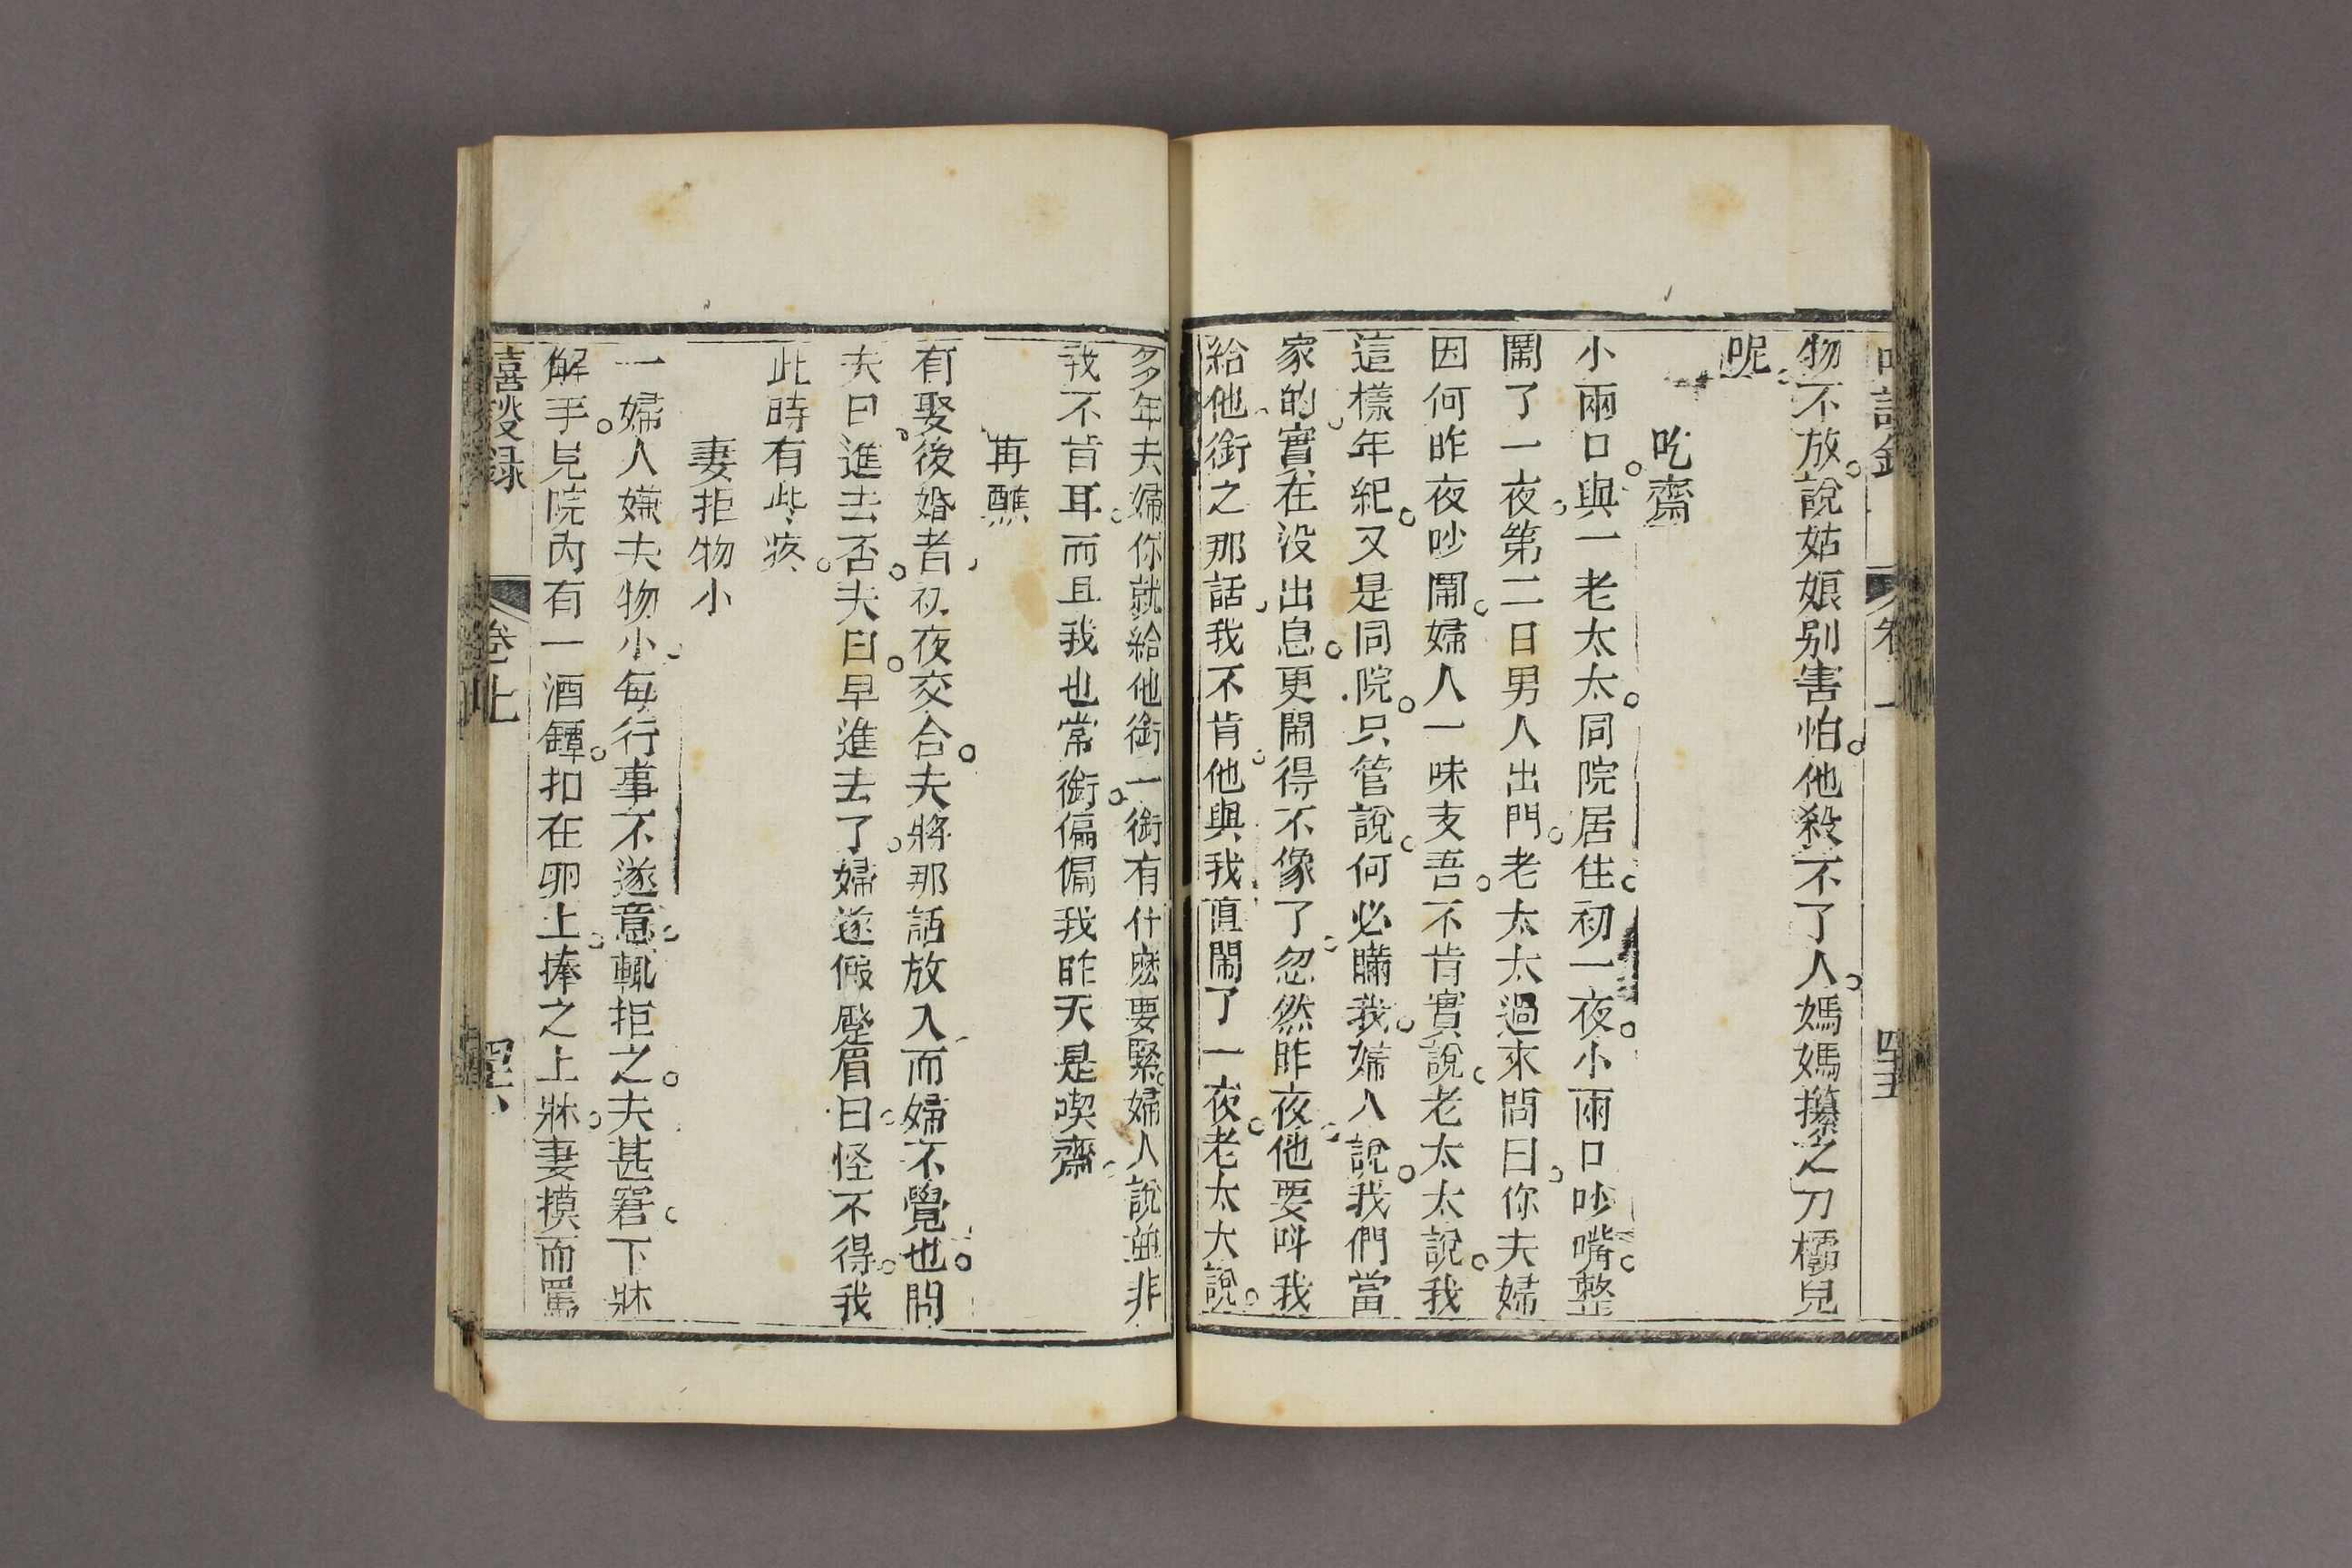 物不放。說姑娘别害怕。他殺不了人。媽媽攥之刀欛兒
呢。
吃齋
小兩口。與一老太太。同院居住。初一夜。小兩口吵嘴。整
鬧了一夜。第二日男人出門。老太太過來問曰。你夫婦
因何昨夜吵鬧。婦人一味支吾。不肯實說。老太太說。我
這樣年紀。又是同院。只管說。何必瞞我。婦人說。我們當
家的。實在没出息。更鬧得不像了。忽然昨夜。他要呌我
給他。銜之那話。我不肯。他與我直鬧了一夜。老太太說。
多年夫婦。你就給他銜一銜。有什麽要緊。婦人說並非
我不肯耳。而且我也常銜。偏偏我昨天是喫齋。
再醮
有娶後婚者。初夜交合。夫將那話放入。而婦不覺也。問
夫曰。進去否。夫曰。早進去了。婦遂假蹙眉曰。怪不得。我
此時有些疼。
妻拒物小
一婦人嫌夫物小。每行事不遂意。輒拒之。夫甚窘。下牀
解手。見院内有一酒罈。扣在卵上。捧之上牀。妻摸而罵
嘻談録
卷上